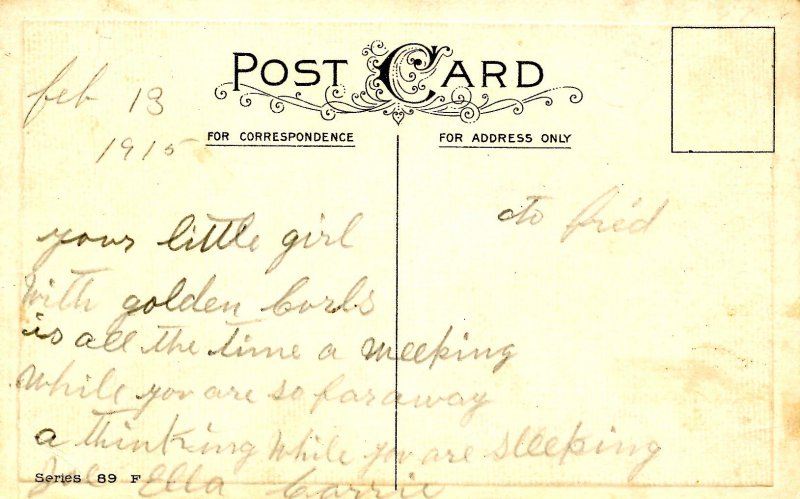 POST CARD
FOR CORRESPONDENCE
FOR ADDRESS ONLY
feb 13
1915
to fred
your little girl
With golden Curls
is all the time a Weeping
While you are so far away
a thinking While you are sleeping
Ella Carrie
Series 89 F